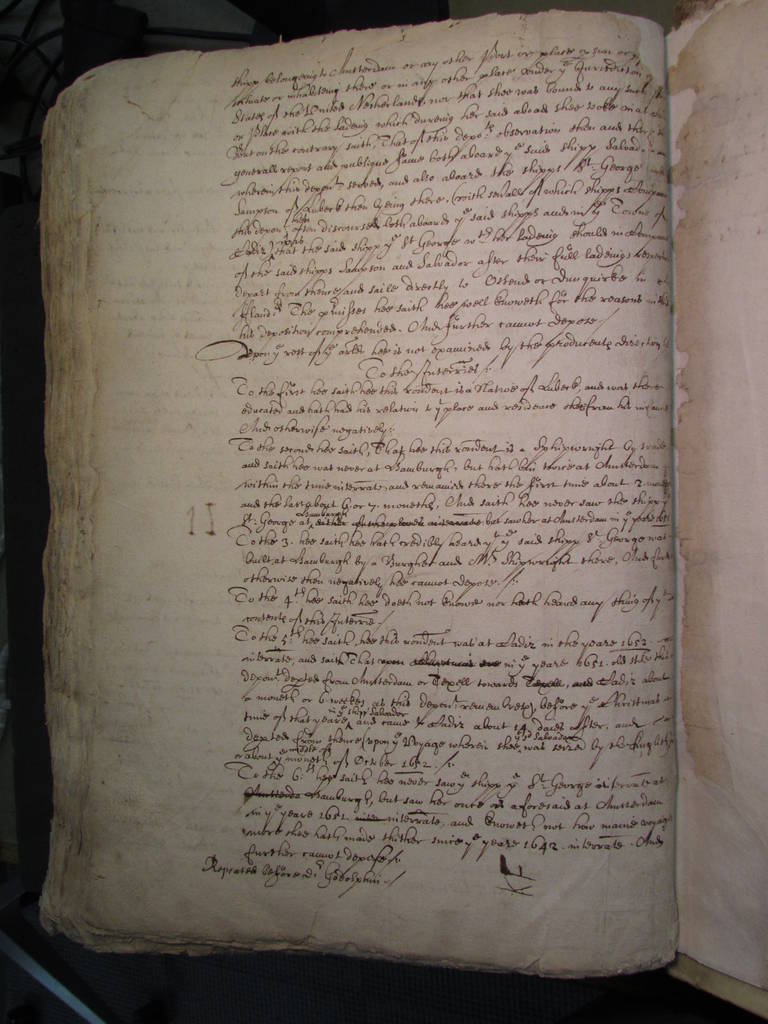 shipp belongeing to Amsterdam or any other Port or place or
scituate or inhabiteing there or in any other place under ye Jurisdiction
States of the United Netherlands, nor that shee was bound to any such
or Place with the ladeing which dureing her said aboad shee tooke in at
But on the contrary saith, That of this depots observation then and there
generall report and publique fame both aboard ye said shipp Salvador
wherein this deponent served, and also aboard the shipps St. George
Sampson of Lubeck then lyeing there, (with severall of which shipps Companies
this deponent often discoursed both aboard ye said shipps and in ye Towne of
Cadiz) that the said shipp ye St George wth her ladeing should in Companie
of the said shipps Sampson and Salvador after their full ladeings
depart from thence and saile directly to Ostend or Dunquirke in
fland:rs The pmisses hee saith hee well knoweth for the reasons in this
his deposition comprehended. And further cannot depose./
Upon ye rest of ye arles hee is not examined by the producents direction
To the Interries:/
To the first hee saith hee this rendent is a Native of Lubeck, and was there
educated and hath had his relation to ye place and residence there from his infancie
And otherwise negatively:/
To the second hee saith, That hee this rendent is a Shipwright by trade
and saith hee was never at Hamburgh, but hath bin twice at Amsterdam
within the time interrate, and remained there the first time about 2 moneths
and the last about 6 or 7 moneths, And saith hee never saw the shipp ye
St. George at Hamburgh but saw her at Amsterdam in ye yeare 1651
To the 3. hee saith hee hath credibly heard yt ye said shipp St. George was
built at Hamburgh by a Burgher and Mr Shipwright there, And
otherwise then negatively hee cannot depose./:
To the 4th hee saith hee doeth not knowe nor hath heard any thing of ye
contents of this Interrie./
To the 5th hee saith, hee this rendent was at Cadiz in the yeare 1652
interrate, and saith That in ye yeare 1651. old stile this
deponent depted from Amsterdam or Texell towards Cadiz about
a moneth or 6 weekes as this deponent remembreth, before ye Christmas
in ye shipp Salvador
time of that yeare, and came to Cadiz about 14 dayes after, and
ye sd Salvador
depted from thence (upon ye Voyage wherein shee was seized by the English)
middle of
or about ye moneth of October 1652./:
To the 6th hee saith hee never saw ye shipp ye St. George interrate at
Amsterda Hamburgh, but saw her once as aforesaid at Amsterdam
in ye yeare 1651 interrate, and knoweth not how manie voyages
more shee hath made thither since ye yeare 1642. interrate. And
further cannot depose/:
Repeated before dr Godolphin./
11